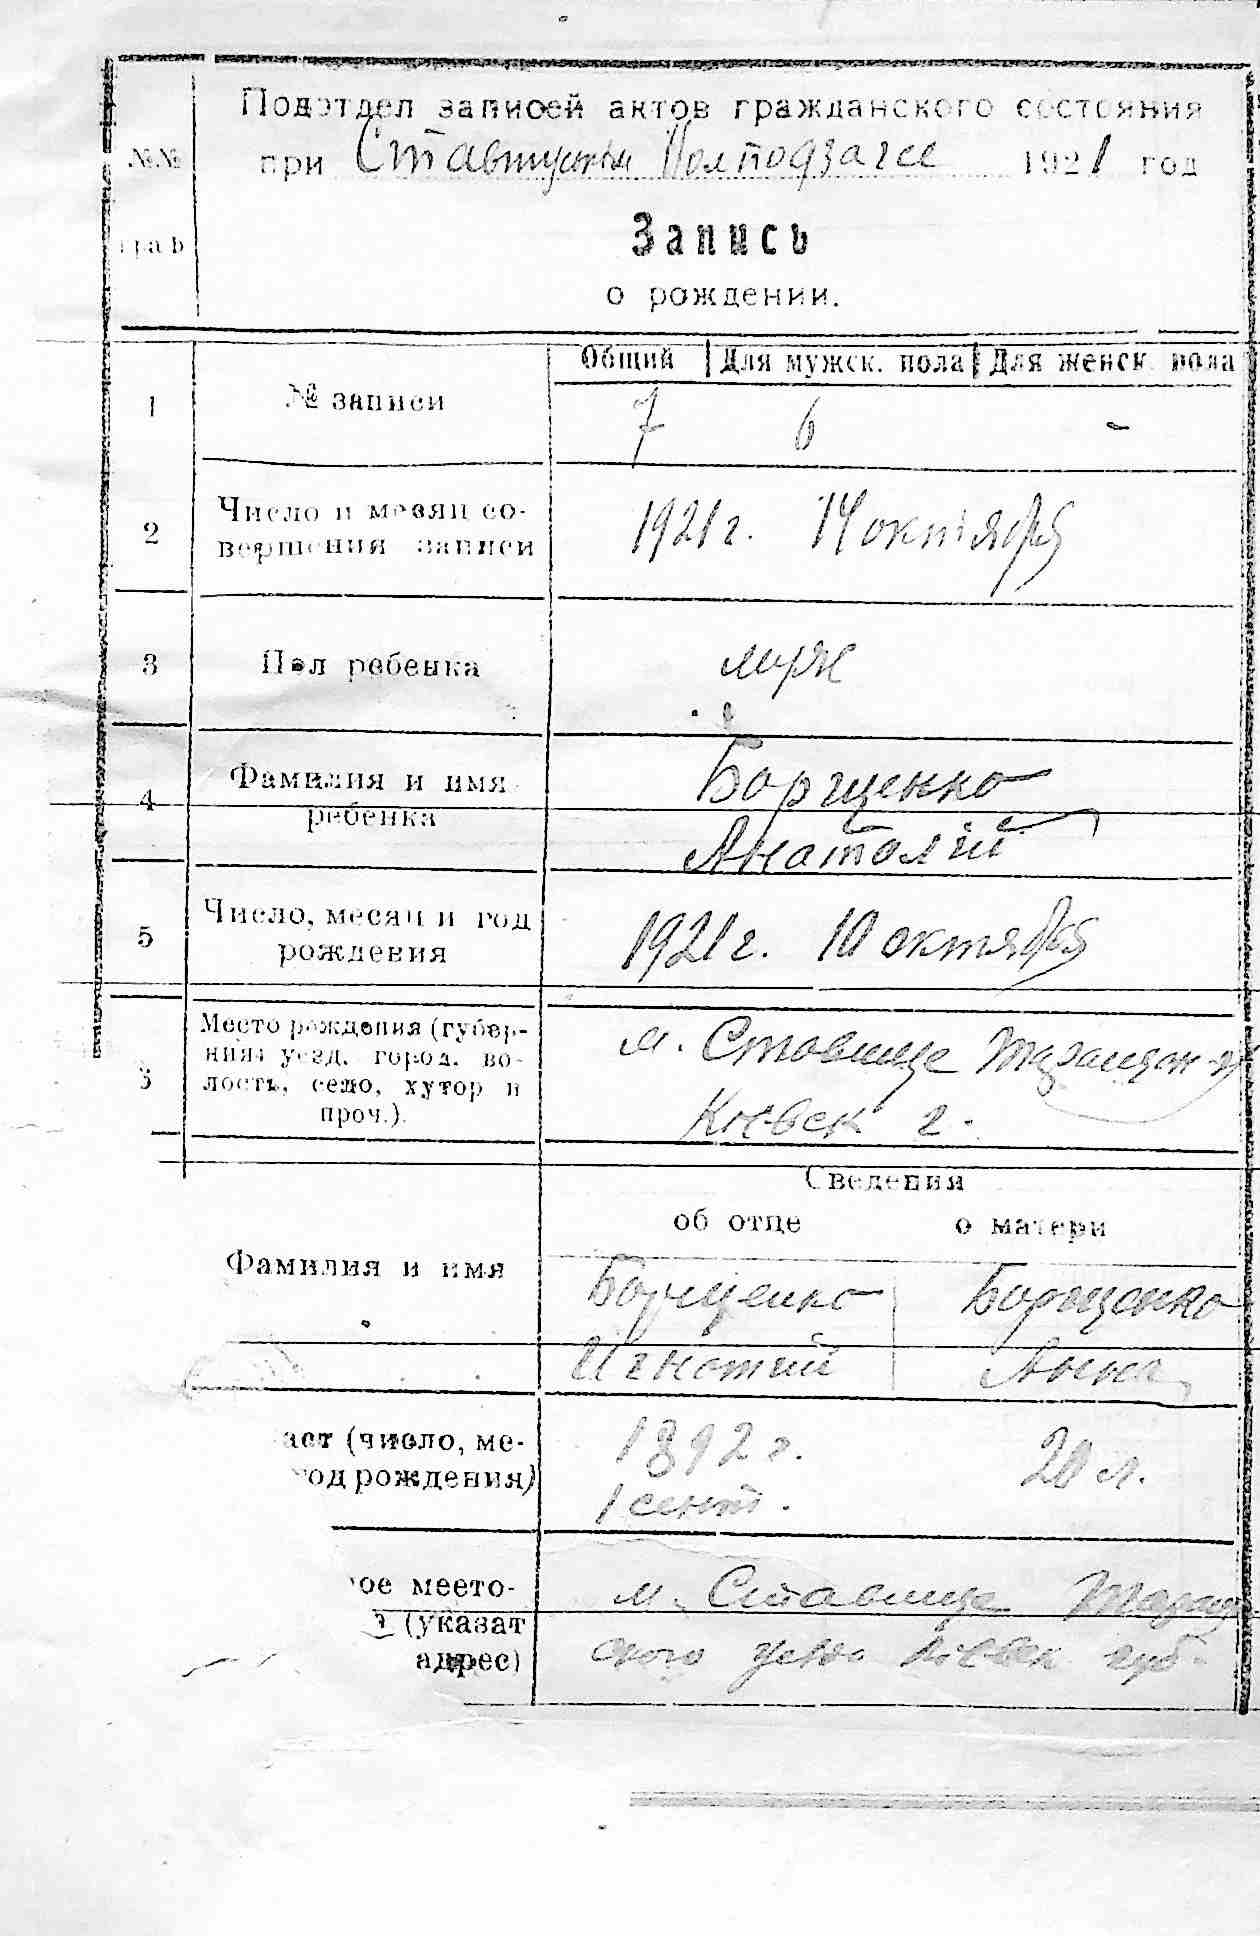 Подотдел записей актов гражданского состояния
при 1921 год
№№
граф
Запись
о рождении.
Общий Для мужск. пола Для женск. пола
1 № записи 7 6 -
2 Число и месяц со-
вершения записи 1921 г. 14 октября
3 Пол ребенка муж
4 Фамилия и имя Борщенко
ребенка Анатолій
5 Число, месяц и год
рождения 1921 г. 10 октября
Место рождения (губер-
ния, уезд, город, во- м. Ставище Таращан
6 лость, село, хутор и
проч.). Киевск г.
Сведения
об отце о матери
Фамилия и имя Борщенко Борщенко
Игнатий Анна
аст (число, ме- 1892 г. 20 л.
од рождения) 1 сент.
ое место- м. Ставище Таращ
(указат ского уезда Киевск губ.
адрес)